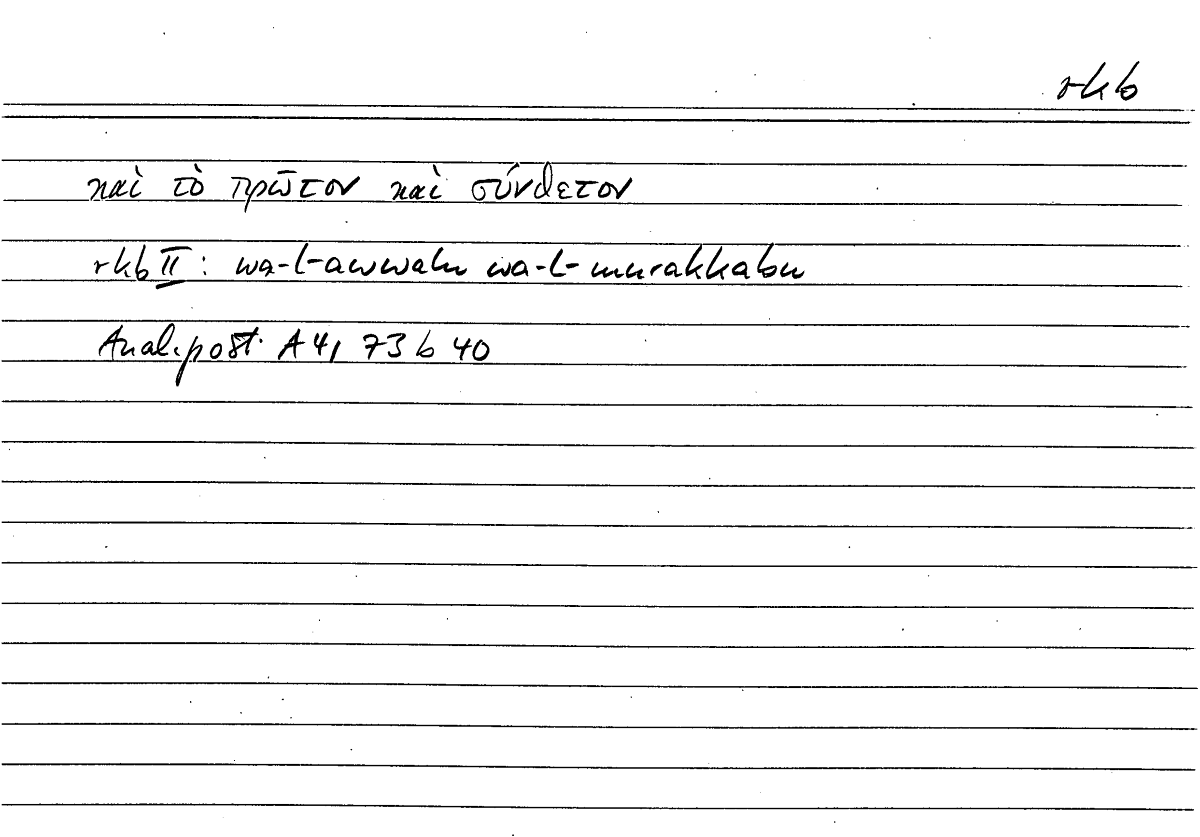 rkb
καὶ τὸ πρῶτον καὶ σύνθετον
rkb II: wa-l-awwalu wa-l-murakkabu
Anal.post. A 4, 73 b 40